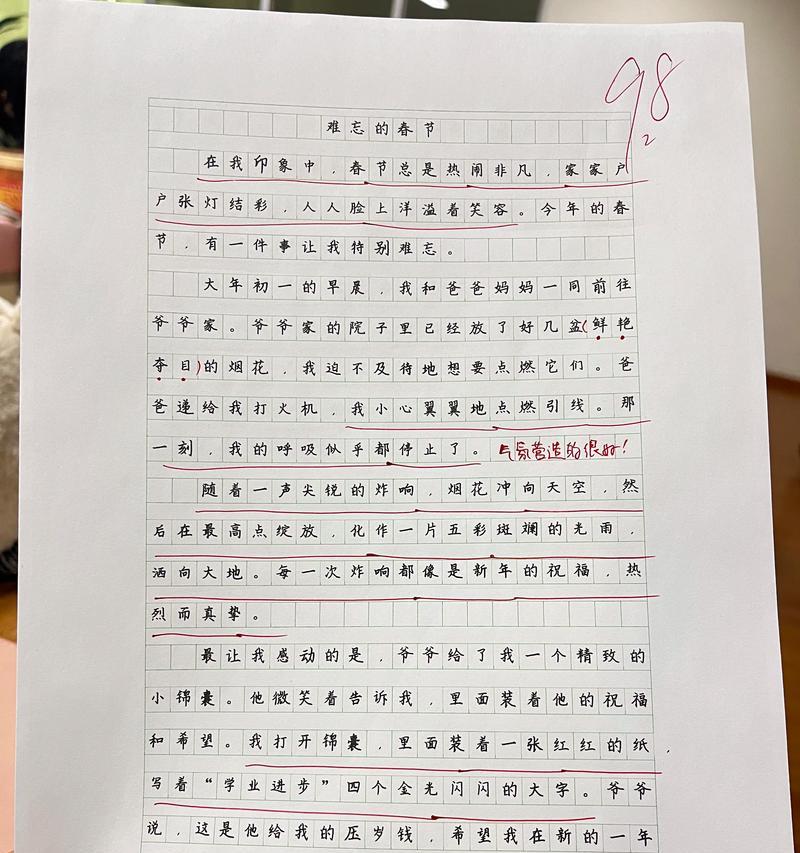 98
2
难忘的春节
在我印象中，春节总是热闹非凡，家家户
户张灯结彩，人人脸上洋溢着笑容。今年的春
节，有一件事让我特别难忘。
大年初一的早晨，我和爸爸妈妈一同前往
爷爷家。爷爷家的院子里已经放了好几盆(鲜艳
夺目)的烟花，我迫不及待地想要点燃它们。爸
爸递给我打火机，我小心翼翼地点燃引线。那
一刻，我的呼吸似乎都停止了。 气氛营造的很好！
随着一声尖锐的炸响，烟花冲向天空，然
后在最高点绽放，化作一片五彩斑斓的光雨，
洒向大地。每一次炸响都像是新年的祝福，热
烈而真挚。
最让我感动的是，爷爷给了我一个精致的
小锦囊。他微笑着告诉我，里面装着他的祝福
和希望。我打开锦囊，里面装着一张红红的纸，
写着“学业进步”四个金光闪闪的大字。爷爷
说，这是他给我的压岁钱，希望我在新的一年